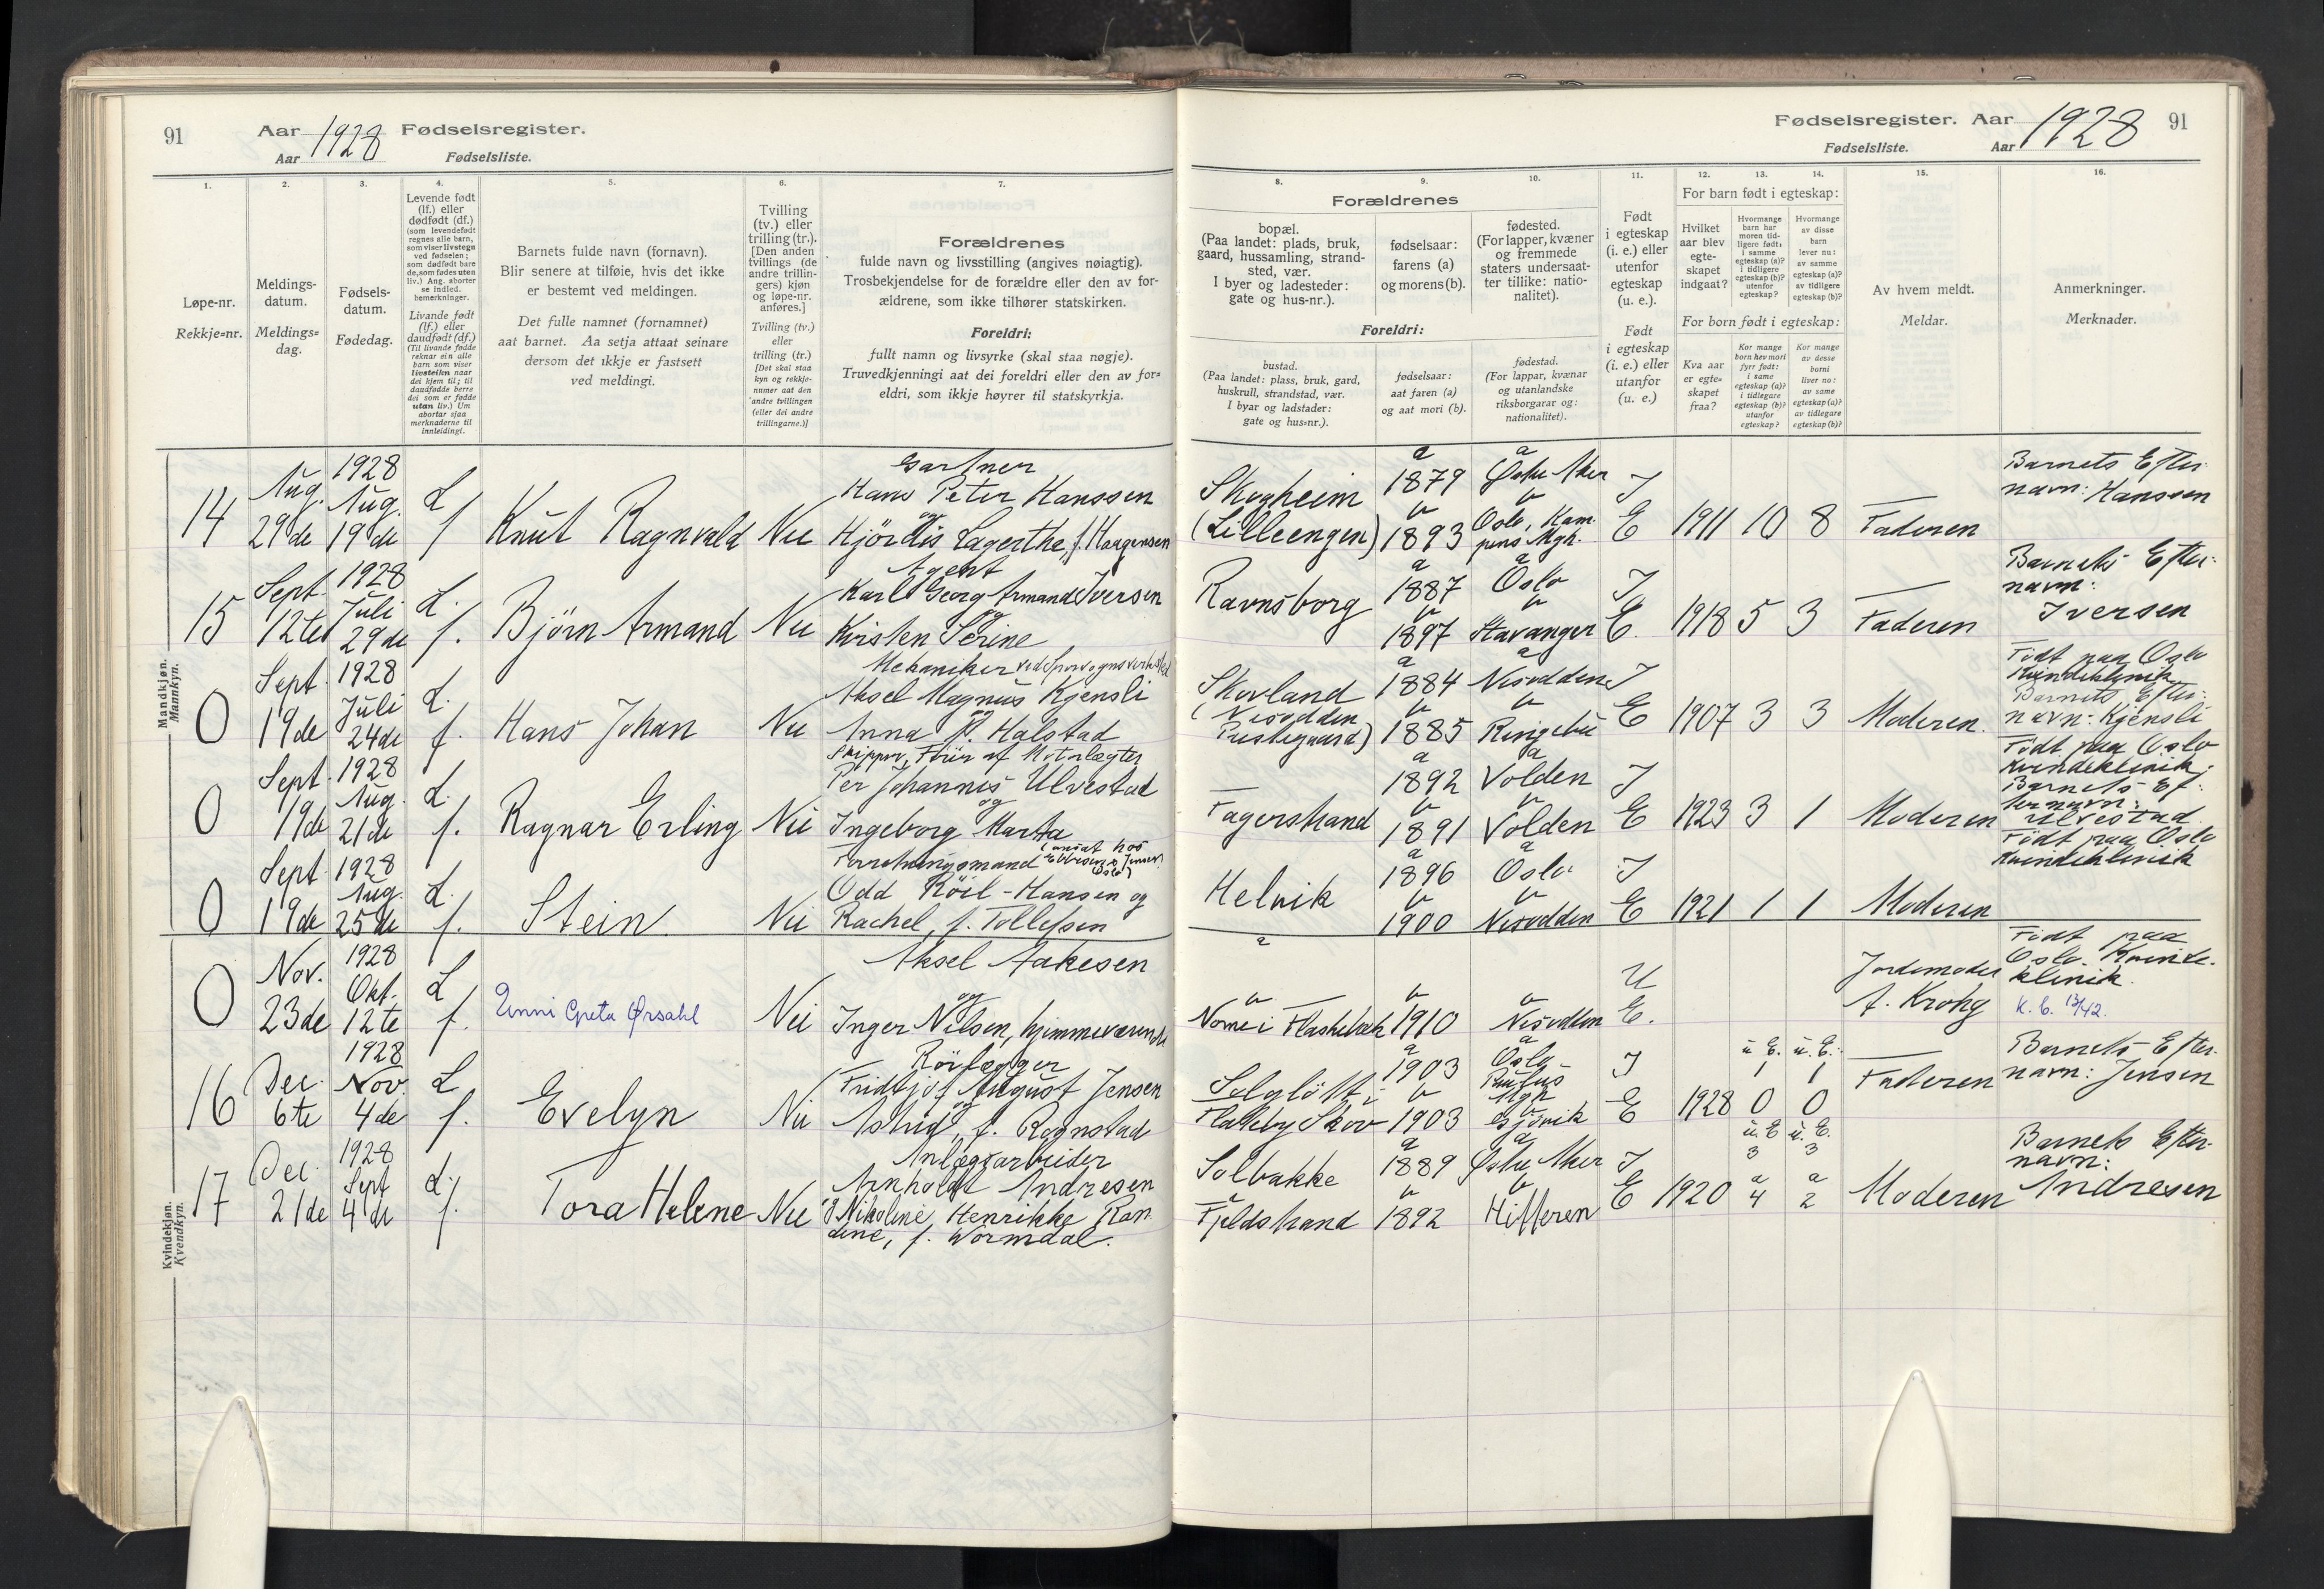 91
Aar 1928 Fødselsregister.
Aar
Fødselsliste.
1.
Løpe-nr.
Rekkje=nr.
2.
Meldings-
datum.
Meldings=
dag.
3.
Fødsels-
datum.
Fødedag.
4.
Levende født
(lf.) eller
dødfødt (df.)
(som levendefødt
regnes alle barn,
som viser livstegn
ved fødselen;
som dødfødt bare
de, som fødes uten
liv.) Ang. aborter
se indled.
bemerkninger.
Livande født
(lf.) eller
daudfødt (df.)
(Til livande fødde
reknar ein alle
barn som viser
livsteikn naar
dei kjem til; til
daudfødde berre
dei som er fødde
utan liv.) Um
abortar sjaa
merknaderne til
innleidingi.
5.
Barnets fulde navn (fornavn).
Blir senere at tilføie, hvis det ikke
er bestemt ved meldingen.
Det fulle namnet (fornamnet)
aat barnet. Aa setja attaat seinare
dersom det ikkje er fastsett
ved meldingi.
6.
Tvilling
(tv.) eller
trilling (tr.).
[Den anden
tvillings (de
andre trillin-
gers) kjøn
og løpe-nr.
anføres.]
Tvilling (tv.)
eller
trilling (tr.)
[Det skal staa
kyn og rekkje-
nummer aat den
andre tvillingen
(eller dei andre
trillingarne.)]
7.
Forældrenes
fulde navn og livsstilling (angives nøiagtig).
Trosbekjendelse for de forældre eller den av for-
ældrene, som ikke tilhører statskirken.
Foreldri:
fullt namn og livsyrke (skal staa nøgje).
Truvedkjenningi aat dei foreldri eller den av for=
eldri, som ikkje høyrer til statskyrkja.
Mandkjøn.
Mannkyn.
14 Aug. 29de 1928 Aug. 19de L. f. Knut Ragnvald Nei
Gartner
Hans Peter Hanssen
og
Hjördis Lagertha, f. Haagensen
15 Sept. 12te 1928 Juli 29de L. f. Björn Armand Nei
Agent
Karl Georg Armand Iversen
og
Kirsten Serine
0 Sept. 19de 1928 Juli 24de L. f. Hans Johan Nei
Mekaniker ved Sporvognsverksted
Aksel Magnus Kjensli
og
Anna f. Halstad
0 Sept. 19de 1928 Aug. 21de L. f. Ragnar Erling Nei
Skipper,
Per Johannes Ulvestad
og
Ingeborg Marta
0 Sept. 19de 1928 Aug. 25de L. f. Stein Nei
Forretningsmand (ansat hos
Oslo)
Odd Röil-Hansen og
Rachel, f. Tollefsen
Kvindekjøn.
Kvendkyn.
0 Nov. 23de 1928 Okt. 12te L. f. Unni Greta Ørsahl Nei
Aksel Aakesen
og
Inger Nilsen, hjemmeværende
16 Dec. 6te 1928 Nov. 4de L. f. Evelyn Nei
Rörlægger
Fridtjof August Jensen
og
Astrid, f. Rognstad
17 Dec. 21de 1928 Sept 4de L. f. Tora Helene Nei
Anlægsarbeider
Arnholdt Andresen
og Nikoline Henrikke Ran-
dine, f. Wormdal.
Fødselsregister. Aar 1928 91
Fødselsliste. Aar
8.
Forældrenes
bopæl.
(Paa landet: plads, bruk,
gaard, hussamling, strand-
sted, vær.
I byer og ladesteder:
gate og hus-nr.).
Foreldri:
bustad.
(Paa landet: plass, bruk, gard,
huskrull, strandstad, vær.
I byar og ladstader:
gate og hus=nr.).
9.
fødselsaar:
farens (a)
og morens (b).
fødselsaar:
aat faren (a)
og aat mori (b).
10.
fødested.
(For lapper, kvæner
og fremmede
staters undersaat-
ter tillike: natio-
nalitet).
fødestad.
(For lappar, kvænar
og utanlandske
riksborgarar og:
nationalitet).
11.
Født
i egteskap
(i. e.) eller
utenfor
egteskap
(u. e.).
Født
i egteskap
(i. e.) eller
utanfor
(u. e.)
12.
13.
14.
For barn født i egteskap:
Hvilket
aar blev
egte-
skapet
indgaat?
Hvormange
barn har
moren tid-
ligere født:
i samme
egteskap (a)?
i tidligere
egteskap (b)?
utenfor
egteskap?
Hvormange
av disse
barn
lever nu:
av samme
egteskap (a)?
av tidligere
egteskap (b)?
For born født i egteskap:
Kva aar
er egte=
skapet
fraa?
Kor mange
born hev mori
fyrr født:
i same
egteskap (a)?
i tidlegare
egteskap (b)?
utanfor
egteskap?
Kor mange
av desse
borni
liver no:
av same
egteskap (a)?
av tidlegare
egteskap (b)?
15.
Av hvem meldt.
Meldar.
16.
Anmerkninger.
Merknader.
Skogheim
(Lilleengen)
a 1879 b 1893
a Östre Aker
b Oslo, Kam-
pens Mgh.
I E 1911 10 8 Faderen
Barnets Efter-
navn: Hanssen
Ravnsborg
a 1887 b 1897
a Oslo
b Stavanger
I E. 1918 5 3 Faderen
Barnets Efter-
navn:
Iversen
Skovland
(Nesodden
Prestegaard)
a 1884 b 1885
a Nesodden
b Ringebu
I E 1907 3 3 Moderen.
Födt paa Oslo
Kvindeklinik
Barnets Efter-
navn: Kjensli
Fagerstrand
a 1892 b 1891
a Volden
b Volden
I E 1923 3 1 Moderen
Födt paa Oslo
Kvindeklinik.
Barnets Ef-
ternavn:
Ulvestad
Helvik
a 1896 b 1900
a Oslo
b Nesodden
I E 1921 1 1 Moderen
Födt paa Oslo
Kvindeklinik
a
b
i Flaskebek
b 1910
b Nesodden
U E.
Jordemoder
A. Krohg
Födt paa
Oslo Kvinde-
klinik.
K. b. 13/42.
Solglött i
Flateby Skov
a 1903 b 1903
a Oslo
Paulus
Mgh
b Gjövik
I E 1928
u. E. 1 0
u. E. 1 0
Faderen
Barnets Efter-
navn: Jensen
Solbakke
Fjeldstrand
a 1889 b 1892
a Östre Aker
b Hitteren
I E 1920
u. E 3 a 4
u. E. 3 a 2
Moderen
Barnets Efter-
navn:
Andresen